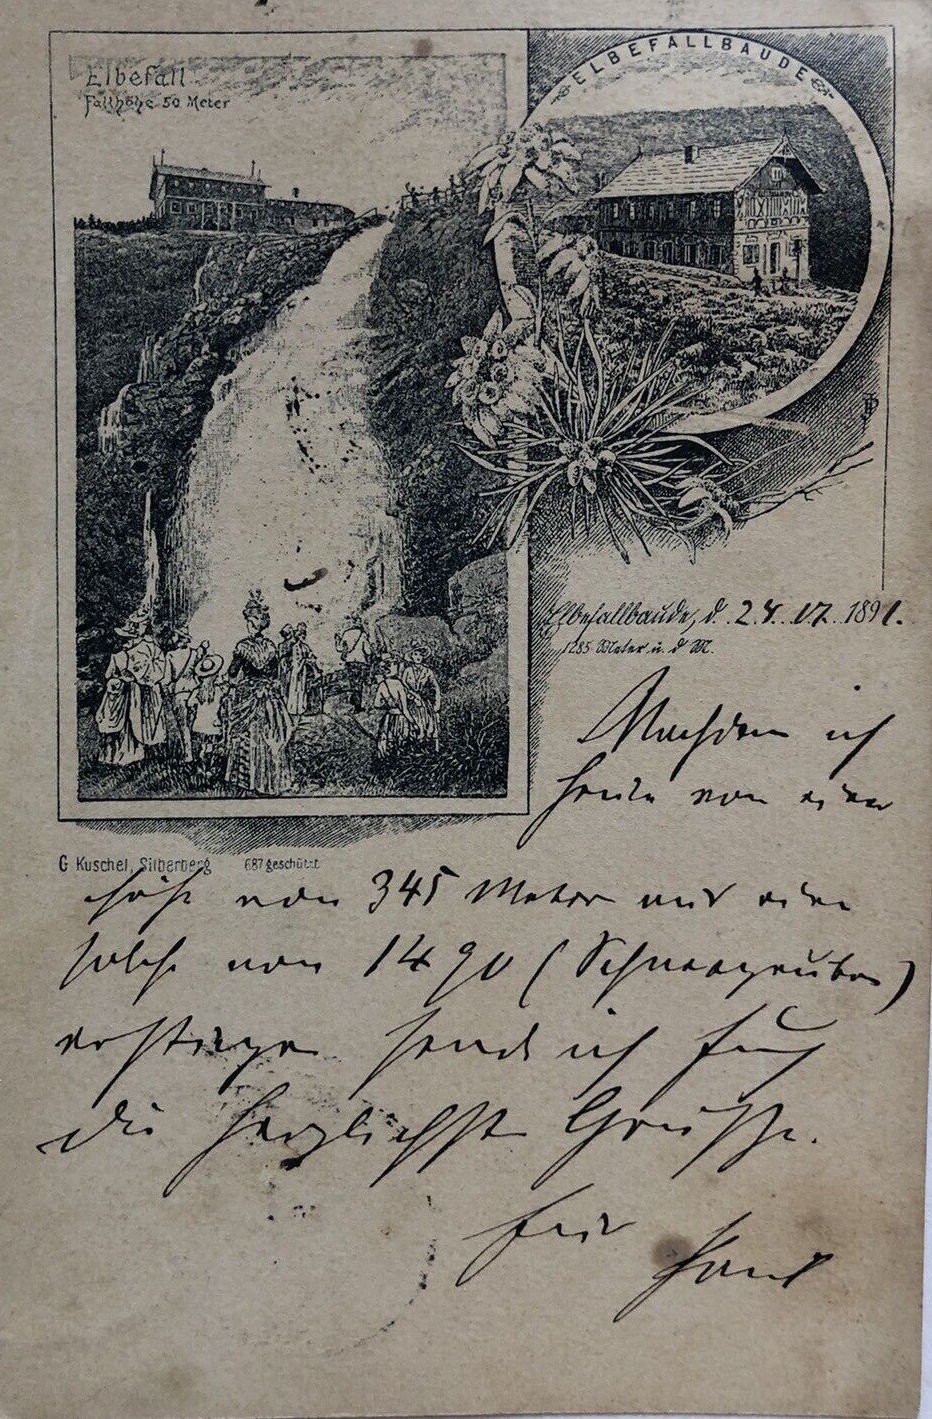 Elbefall.
Fallhöhe 50 Meter
ELBEFALLBAUDE
Elbefallbaude, d. 24. 07. 1891.
1285 Meter ü. d M.
Nachdem ich
heute von einer
G Kuschel, Silberberg 687 geschützt
Höhe von 345 Meter auf eine
solche von 1490 (Schneegruben)
erstiegen sende ich Euch
die herzlichste Grüße.
Euer